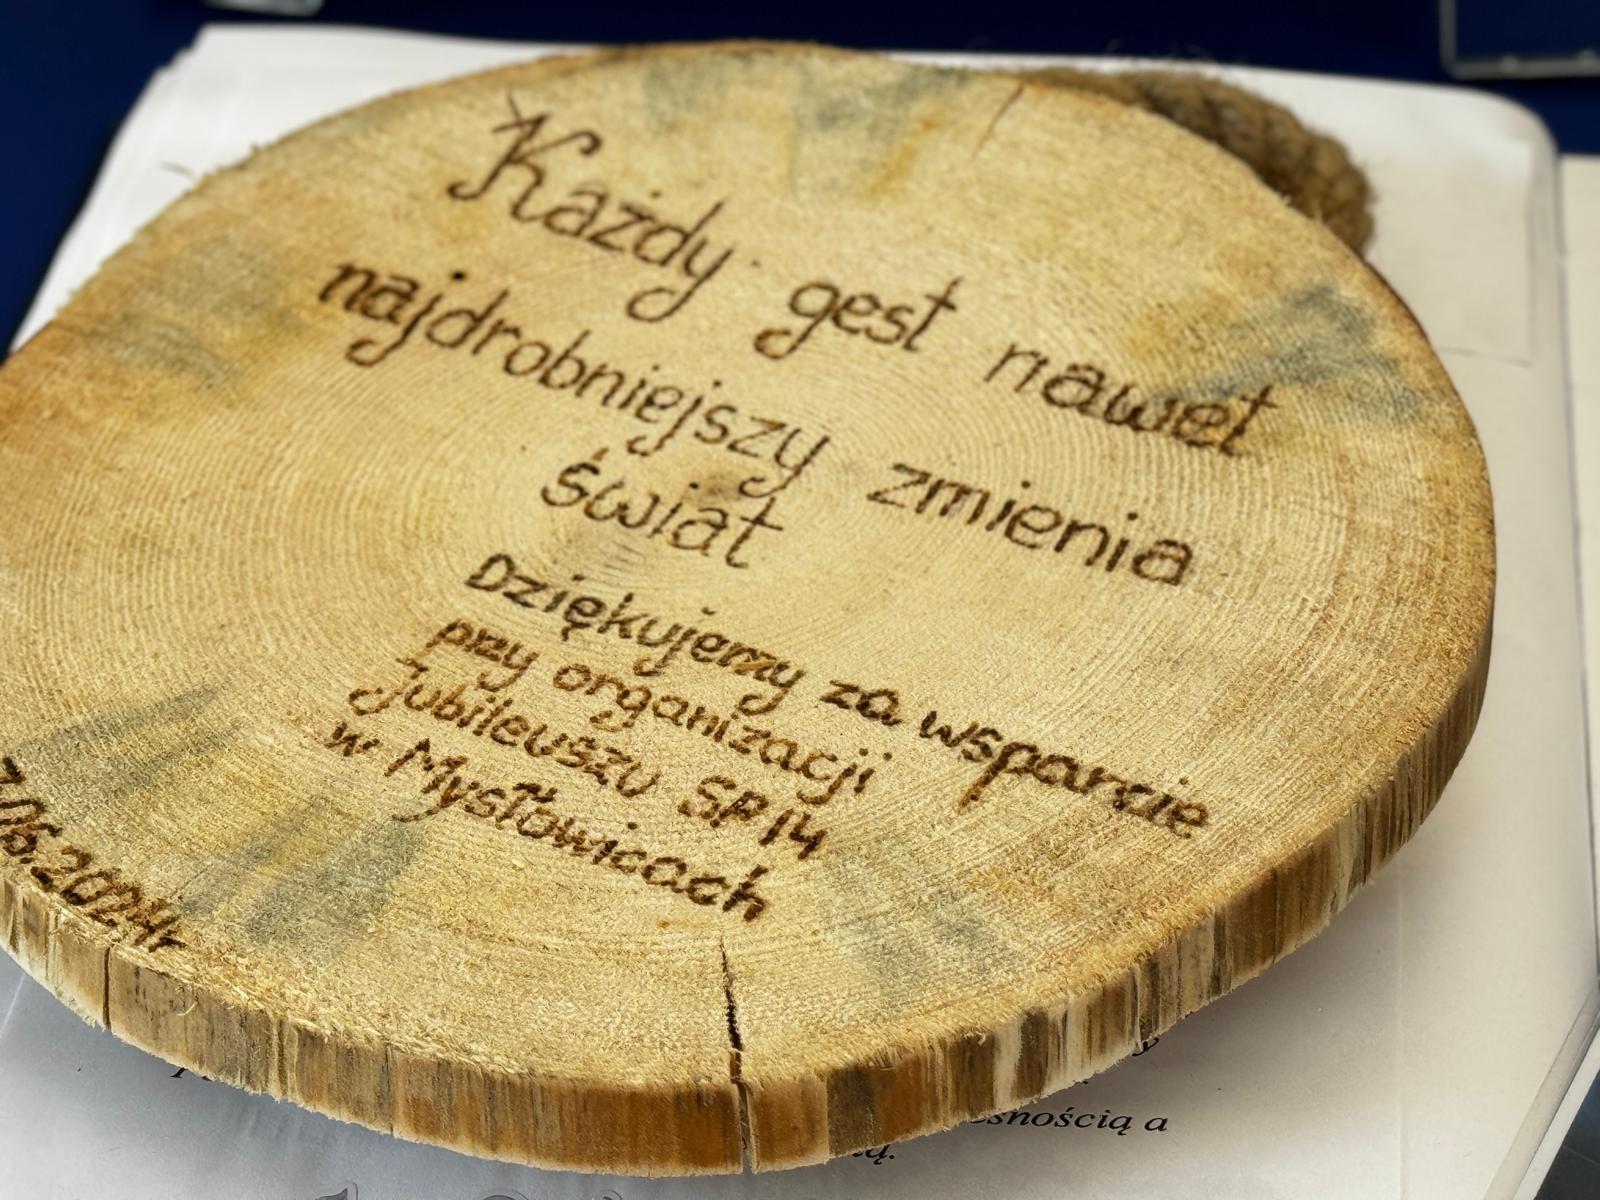 Każdy gest nawet
najdrobniejszy zmienia
świat
Dziękujemy za wsparcie
przy organizacji
Jubileuszu SP14
w Mysłowicach
06.2024r
a